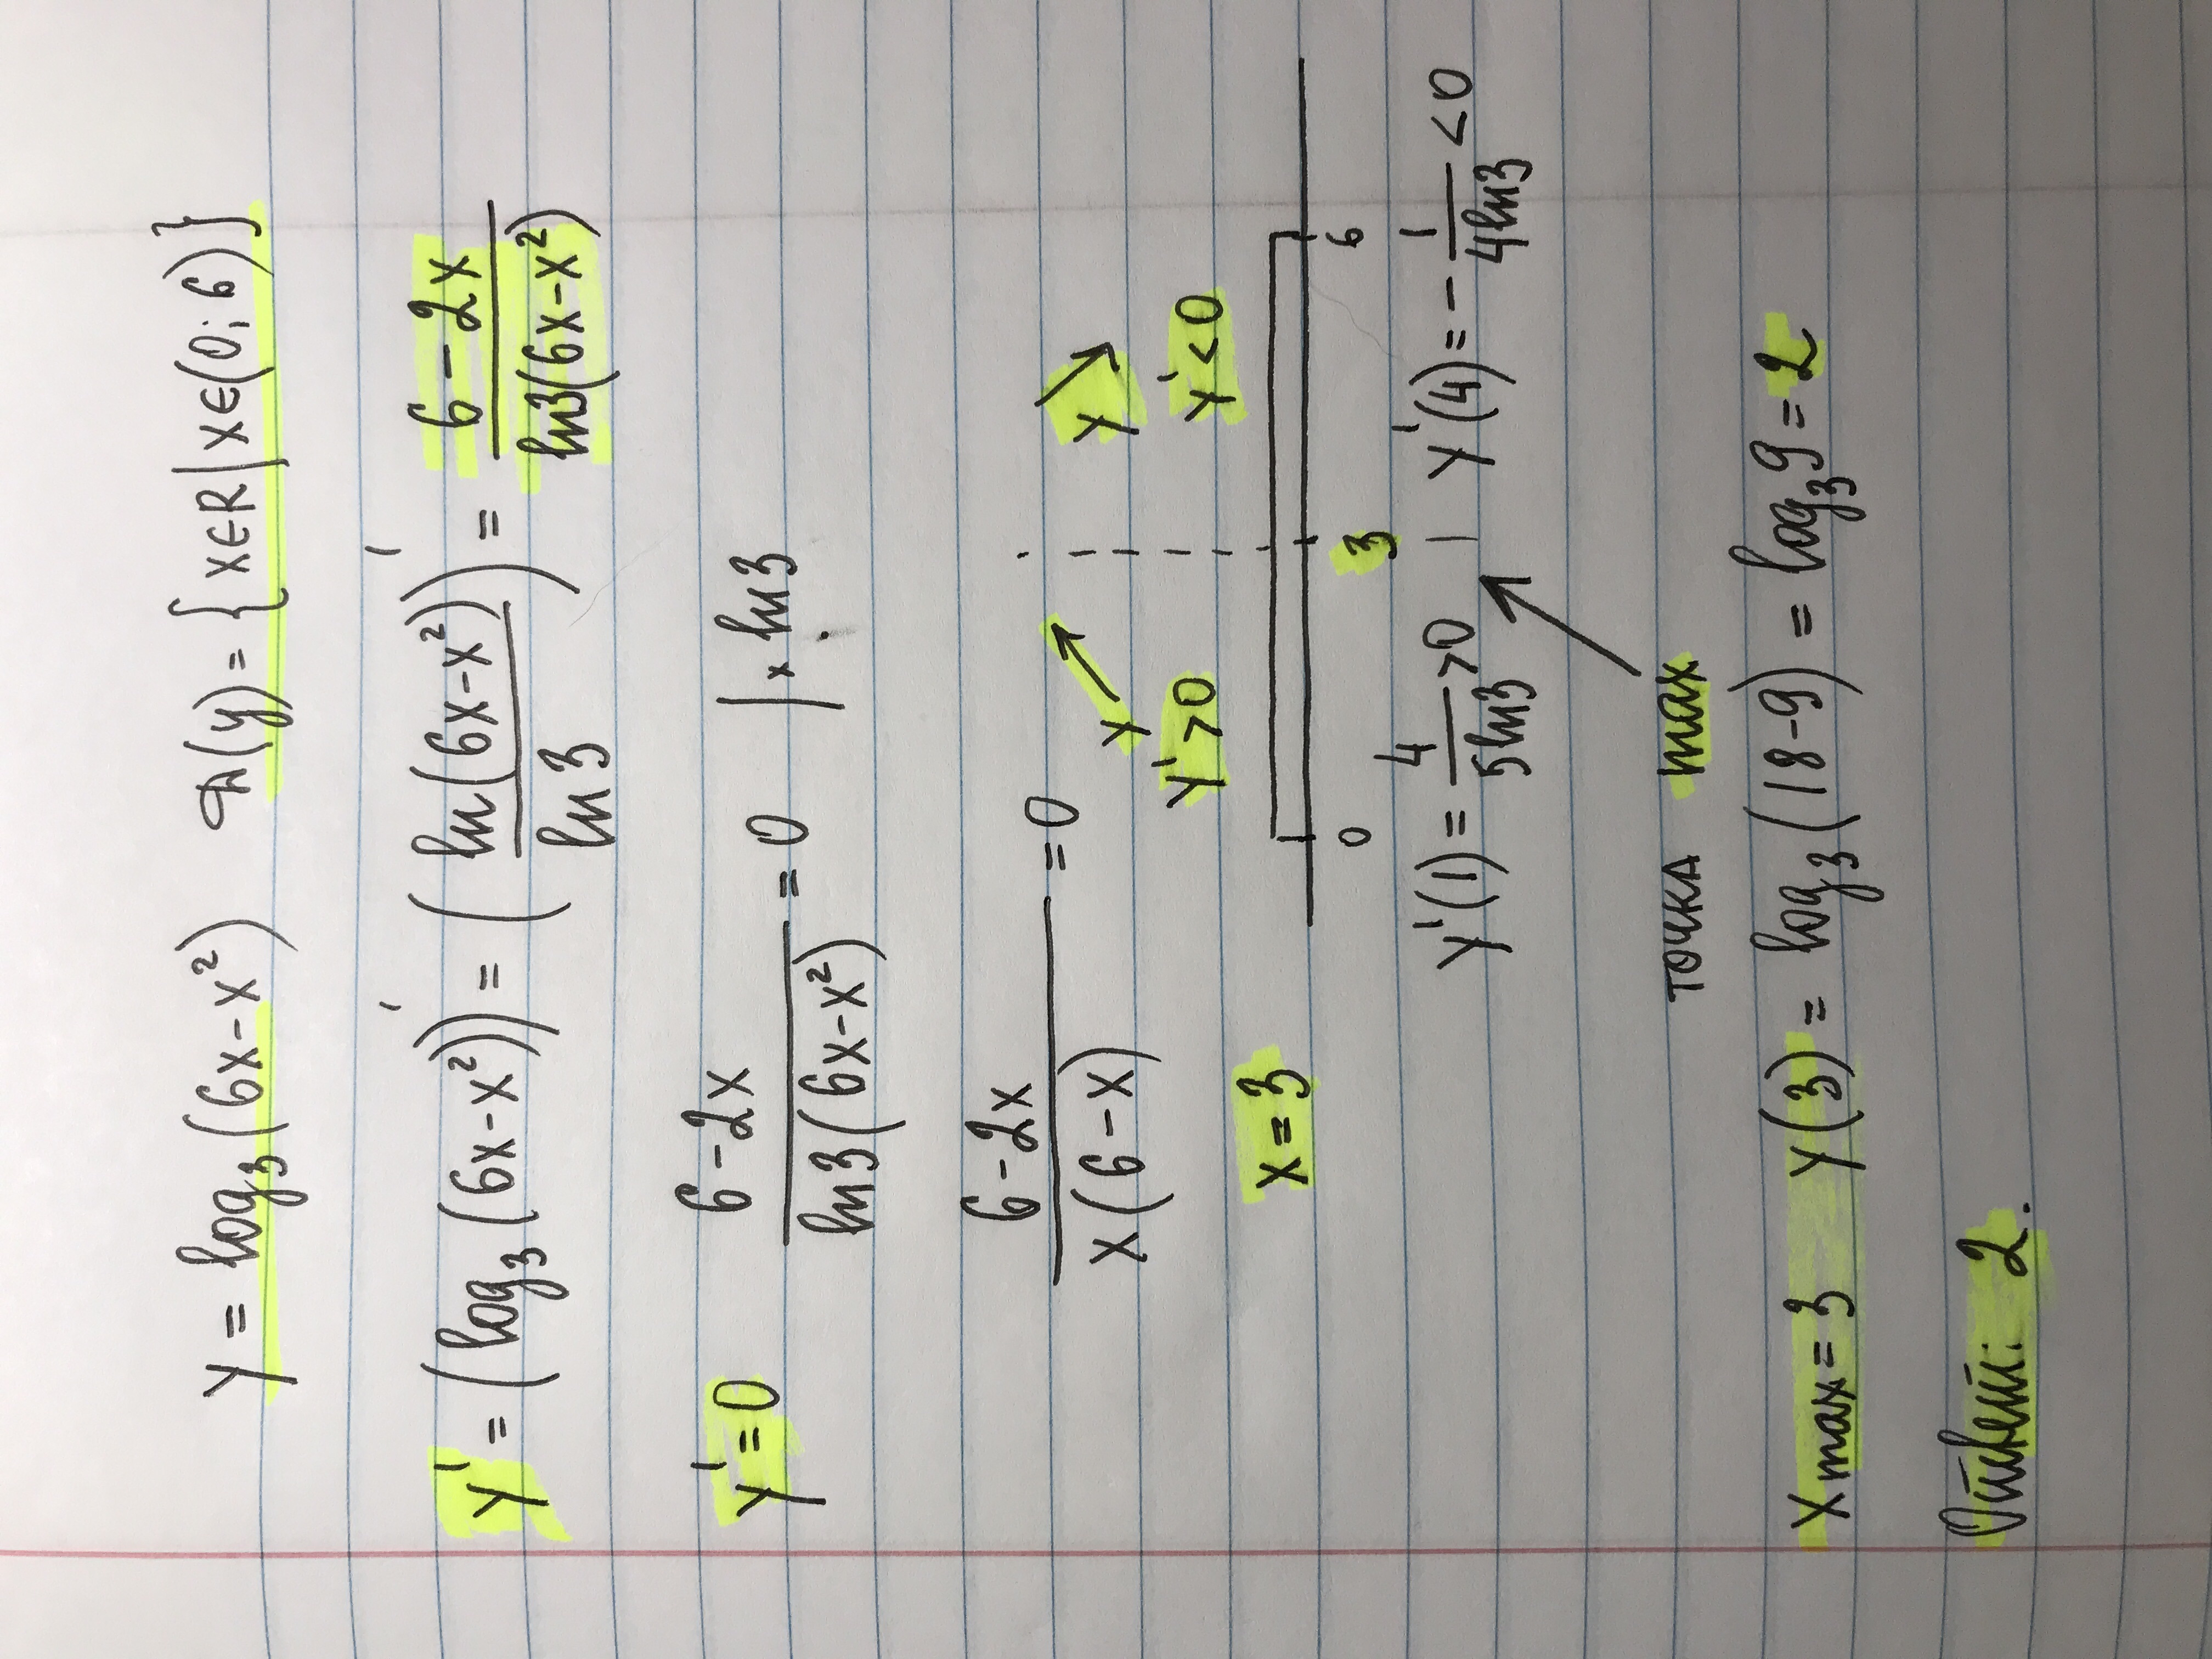 y = log₃(6x-x²) D(y) = {x∈R|x∈(0;6)}
y' = (log₃(6x-x²))' = (ln(6x-x²)/ln3)' = (6-2x)/(ln3(6x-x²))
y'=0 (6-2x)/(ln3(6x-x²)) = 0 |×ln3
(6-2x)/(x(6-x)) = 0
y ↗ y ↘
y'>0 y'<0
x=3
0 3 6
y'(1) = 4/(5ln3) >0 | y'(4) = -1/(4ln3) <0
точка max
x max=3 y(3) = log₃(18-9) = log₃9=2
Ответ: 2.